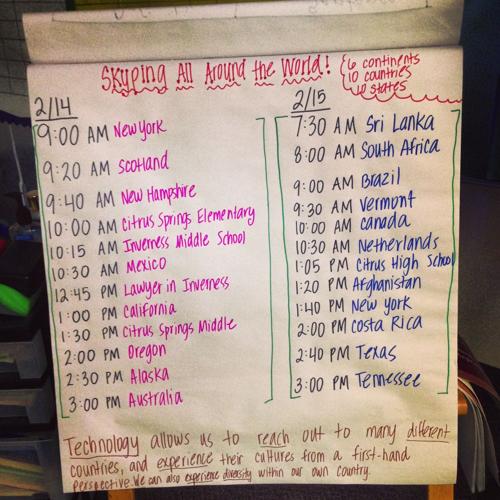 Skyping All Around the World!
6 continents
10 countries
states
2/14
9:00 AM New York
9:20 AM Scotland
9:40 AM New Hampshire
10:00 AM Citrus Springs Elementary
10:15 AM Inverness Middle School
10:30 AM Mexico
12:45 PM Lawyer in Inverness
1:00 PM California
1:30 PM Citrus Springs Middle
2:00 PM Oregon
2:30 PM Alaska
3:00 PM Australia
2/15
7:30 AM Sri Lanka
8:00 AM South Africa
9:00 AM Brazil
9:30 AM Vermont
10:00 AM Canada
10:30 AM Netherlands
1:05 PM Citrus High School
1:20 PM Afghanistan
1:40 PM New York
2:00 PM Costa Rica
2:40 PM Texas
3:00 PM Tennessee
Technology allows us to reach out to many different
countries, and experience their cultures from a first-hand
perspective. We can also experience diversity within our own country.